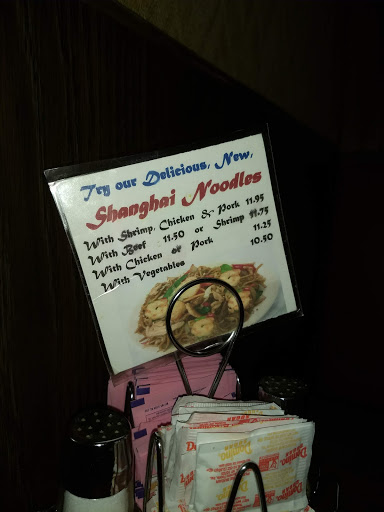 Try our Delicious, New,
Shanghai Noodles
With Shrimp, Chicken & Pork 11.95
With Beef 11.50 or Shrimp 11.75
With Chicken or Pork 11.25
With Vegetables 10.50
Domino
Domino